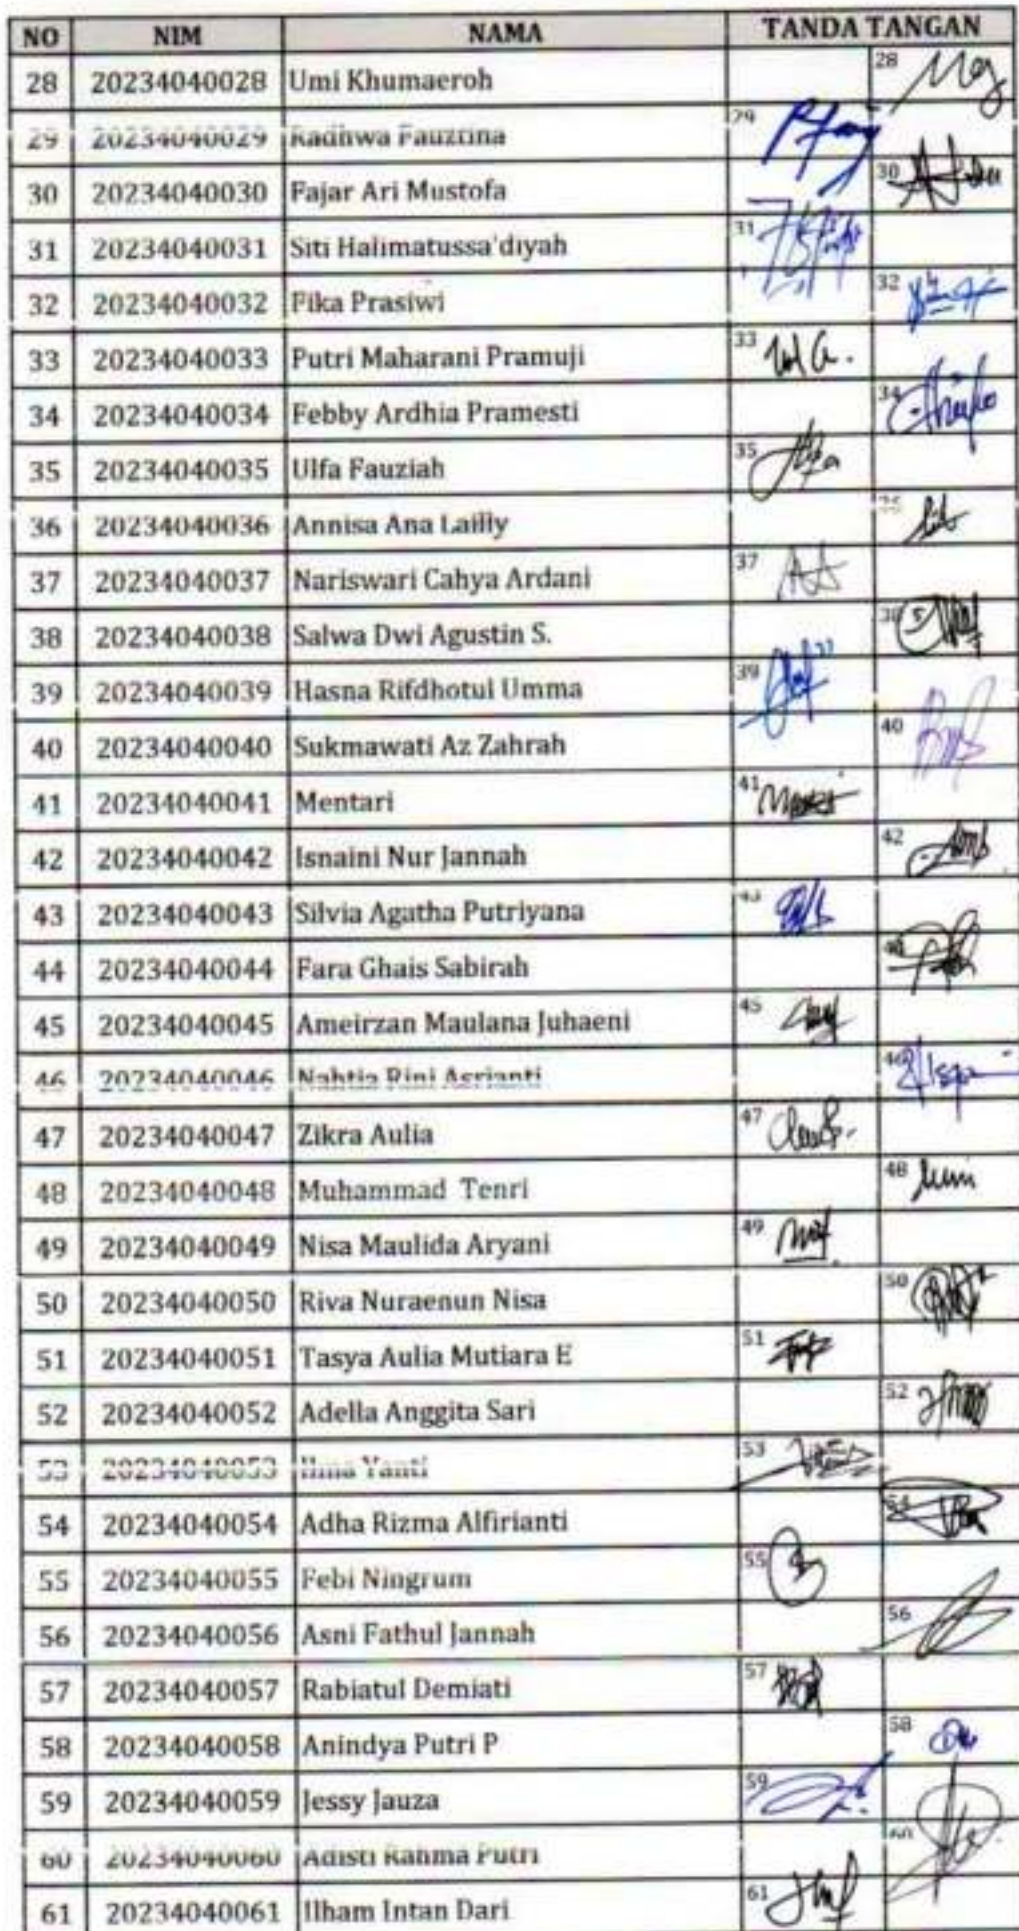 NO NIM NAMA TANDA TANGAN
28 20234040028 Umi Khumaeroh 28
29 20234040029 Radhwa 29
30 20234040030 Fajar Ari Mustofa 30
31 20234040031 Siti Halimatussa'diyah 31
32 20234040032 Fika Prasiwi 32
33 20234040033 Putri Maharani Pramuji 33
34 20234040034 Febby Ardhia Pramesti 34
35 20234040035 Ulfa Fauziah 35
36 20234040036 Annisa Ana Lailly
37 20234040037 Nariswari Cahya Ardani 37
38 20234040038 Salwa Dwi Agustin S. 38
39 20234040039 Hasna Rifdhotul Umma 39
40 20234040040 Sukmawati Az Zahrah 40
41 20234040041 Mentari 41
42 20234040042 Isnaini Nur Jannah 42
43 20234040043 Silvia Agatha Putriyana 43
44 20234040044 Fara Ghais Sabirah 44
45 20234040045 Ameirzan Maulana Juhaeni 45
46 20234040046 Rini Asrianti 46
47 20234040047 Zikra Aulia 47
48 20234040048 Muhammad Tenri 48
49 20234040049 Nisa Maulida Aryani 49
50 20234040050 Riva Nuraenun Nisa 50
51 20234040051 Tasya Aulia Mutiara E 51
52 20234040052 Adella Anggita Sari 52
53 20234040053 Yanti 53
54 20234040054 Adha Rizma Alfirianti 54
55 20234040055 Febi Ningrum 55
56 20234040056 Asni Fathul Jannah 56
57 20234040057 Rabiatul Demiati 57
58 20234040058 Anindya Putri P 58
59 20234040059 Jessy Jauza 59
60 20234040060 Adisti Rahma Putri 60
61 20234040061 Ilham Intan Dari 61